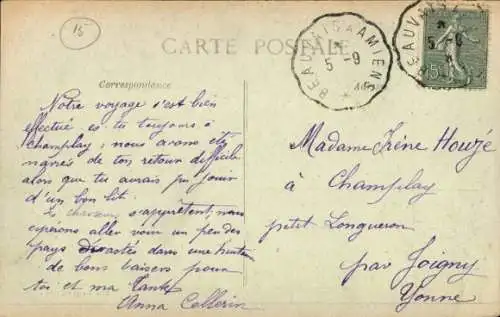 15
CARTE POSTALE
BEAUVAIS A AMIENS
5 -9
BEAUVAIS
5 -9
15
Correspondance
Notre voyage s'est bien
effectué es-tu toujours à
Champlay, nous avons été
navrés de ton retour difficile
alors que tu aurais pu jouir
d'un bon lit.
s'apprêtent, nous
espérons aller voir un peu des
pays dévastés dans une
de bons baisers pour
toi et ma tante
Anna Cellerin
Madame Irène Houze
à Champlay
petit Longueron
par Joigny
Yonne